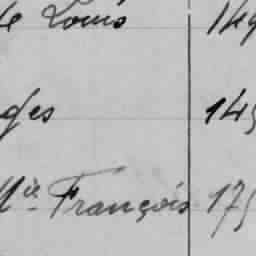 de Louis 149
ges 145
Mie François 175